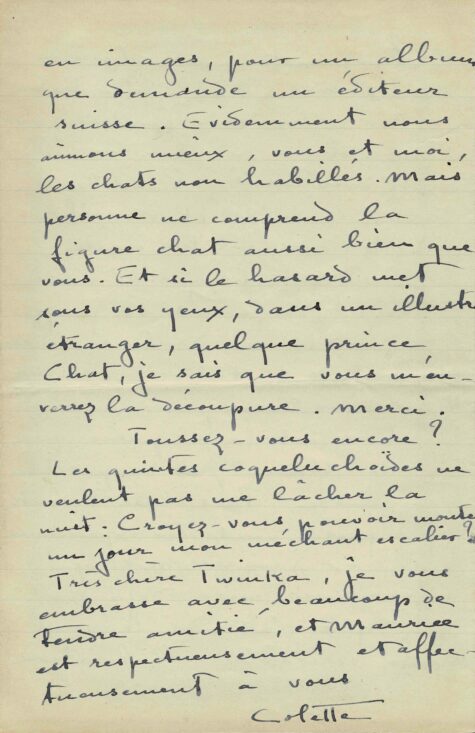 en images, pour un album
que demande un éditeur
suisse. Evidemment nous
aimons mieux, vous et moi,
les chats non habillés. Mais
personne ne comprend la
figure chat aussi bien que
vous. Et si le hasard met
sous vos yeux, dans un illustr
étranger, quelque prince
Chat, je sais que vous m'en-
verrez la découpure. Merci.
Toussez-vous encore?
Les quintes coqueluchoïdes ne
veulent pas me lâcher la
nuit. Croyez-vous pouvoir monte
un jour mon méchant escalier?
Très chère Twinka, je vous
embrasse avec beaucoup de
tendre amitié, et Maurice
est respectueusement et affec-
tueusement à vous
Colette